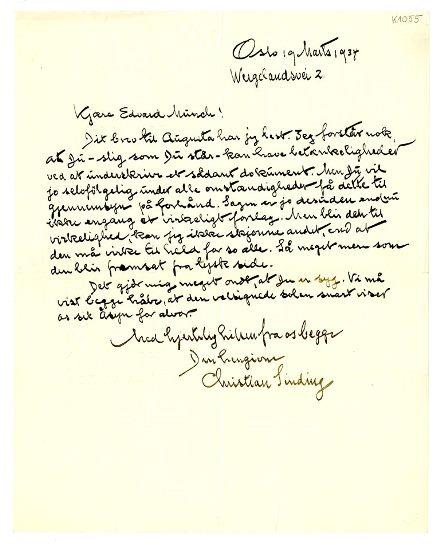 K1055
Oslo 19 Marts 1937
Wergelandsvei 2
Kjære Edvard Munch!
Dit brev til Augusta har jeg læst. Jeg forstår nok,
at Du – slig som Du står – kan have betænkeligheder
ved at underskrive et sådant dokument. Men Du vil
jo selvfølgelig under alle omstændigheder få dette til
gjennemsyn på forhånd. Sagen er jo desuden endnu
ikke engang et virkeligt forslag. Men blir det til
virkelighed, kan jeg ikke skjønne andet, end at
den må virke til held for os alle. Så meget mere som
den blir fremsat fra tysk side.
Det gjør mig meget ondt, at Du er syg. Vi må
vist begge håbe, at den velsignede solen snart viser
os sit åsyn for alvor.
Med hjertelig hilsen fra os begge
Din hengivne
Christian Sinding